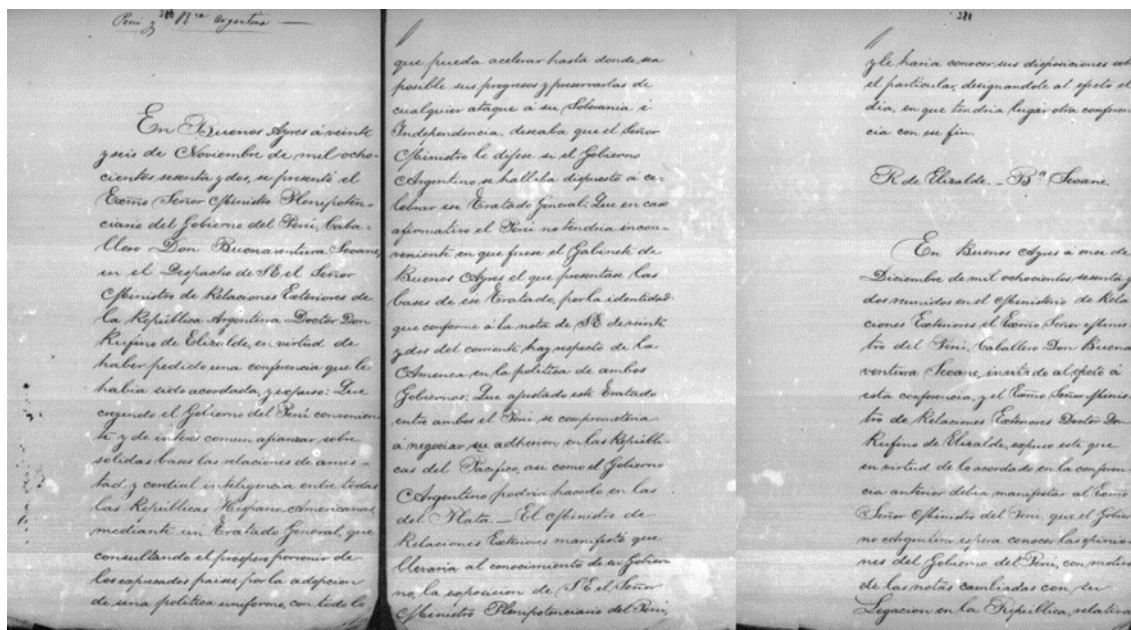 386
Perú y Rca Argentina
En Buenos Ayres á veinte
y seis de Noviembre de mil ocho-
cientos sesenta y dos, se presentó el
Exmo Señor Ministro Plenipoten-
ciario del Gobierno del Perú, Caba-
llero Don Buenaventura Seoane,
en el Despacho de SE el Señor
Ministro de Relaciones Exteriores de
la República Argentina Doctor Don
Rufino de Elizalde, en virtud de
haber pedido una conferencia que le
habia sido acordada, y expuso: Que
creyendo el Gobierno del Perú convenien-
te y de interés comun afianzar sobre
solidas bases las relaciones de amis-
tad y cordial inteligencia entre todas
las Repúblicas Hispano-Americanas,
mediante un Tratado General, que
consultando el prospero porvenir de
los expresados paises por la adopcion
de una politica uniforme, con todo lo
que pueda acelerar hasta donde sea
posible sus progresos y preservarlas de
cualquier ataque á su Soberania i
Independencia, deseaba que el Señor
Ministro le dijese si el Gobierno
Argentino se hallaba dispuesto á ce-
lebrar ese Tratado General; Que en caso
afirmativo el Perú no tendria incon-
veniente en que fuese el Gabinete de
Buenos Ayres el que presentase las
bases de ese Tratado, por la identidad
que conforme á la nota de SE de veinte
y dos del corriente hay respecto de la
America en la politica de ambos
Gobiernos; Que ajustado este Tratado
entre ambos el Perú se comprometeria
á negociar su adhesion en las Repúbli-
cas del Pacifico, asi como el Gobierno
Argentino podria hacerlo en las
del Plata. — El Ministro de
Relaciones Exteriores manifestó que
llevaria al conocimiento de su Gobier-
no, la exposicion de SE el Señor
Ministro Plenipotenciario del Perú,
y le haria conocer sus disposiciones sob
el particular, designandole al efecto el
dia, en que tendria lugar otra conferen
cia con ese fin.
R de Elizalde. — Bra Seoane.
En Buenos Ayres á once de
Diciembre de mil ochocientos sesenta y
dos reunidos en el Ministerio de Rela
ciones Exteriores el Exmo Señor Minis-
tro del Perú, Caballero Don Buena
ventura Seoane, invitado al efecto á
esta conferencia, y el Exmo Señor Minis-
tro de Relaciones Exteriores Doctor Don
Rufino de Elizalde, expuso este que
en virtud de lo acordado en la conferen
cia anterior debia manifestar al Exmo
Señor Ministro del Perú, que el Gobier
no Argentino espera conocer las opinio
nes del Gobierno del Perú, con motivo
de las notas cambiadas con su
Legacion en la República, relativa